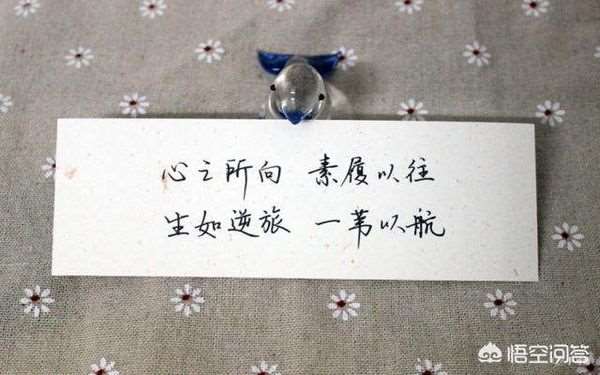 心之所向 素履以往
生如逆旅 一苇以航
悟空问答